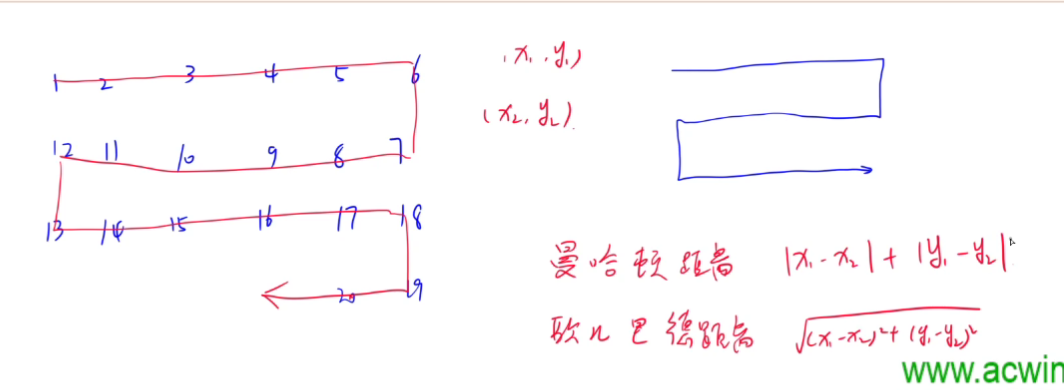 1 2 3 4 5 6
12 11 10 9 8 7
13 14 15 16 17 18
20 19
(x₁, y₁)
(x₂, y₂)
曼哈顿距离 |x₁-x₂| + |y₁-y₂|
欧几里德距离 √(x₁-x₂)²+(y₁-y₂)²
www.acwin